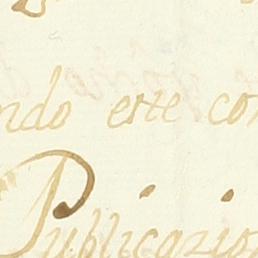 ndo erte con
Publicazion